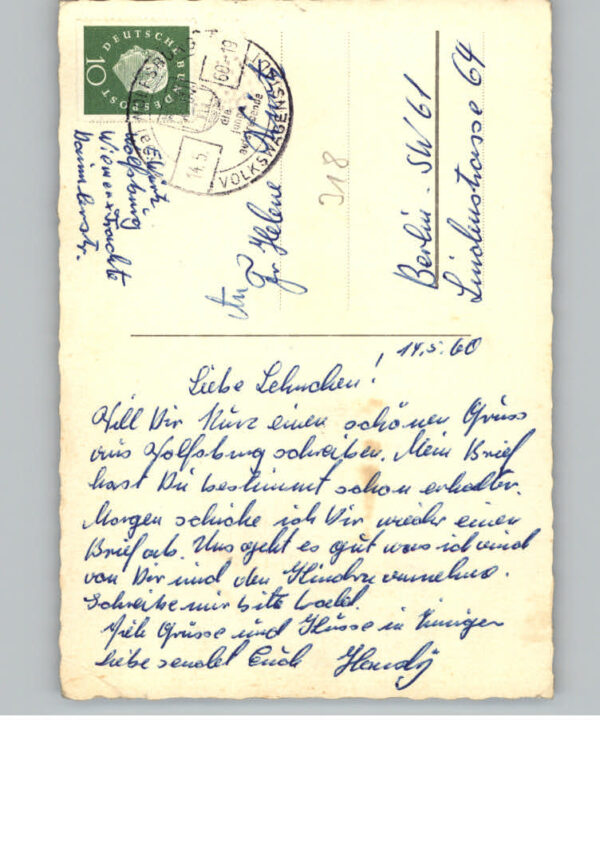 DEUTSCHE BUNDESPOST
10
WOLFSBURG
14.5.60-19
VOLKSWAGENS
die
aufstrebende
Wolfsburg
Wiemer & Trachte
Daimlerstr.
An
Fr Helene
318
Berlin - SW 61
Lindenstrasse 64
14.5.60
Liebe Lehnchen!
Will Dir Kurz einen schönen Gruss
aus Wolfsburg schreiben. Mein Brief
hast Du bestimmt schon erhalten.
Morgen schicke ich Dir wieder einen
Brief ab. Uns geht es gut was ich auch
von Dir und den Kindern annehme.
Schreibe mir bitte bald.
Viele Grüsse und Küsse in Inniger
Liebe sendet Euch